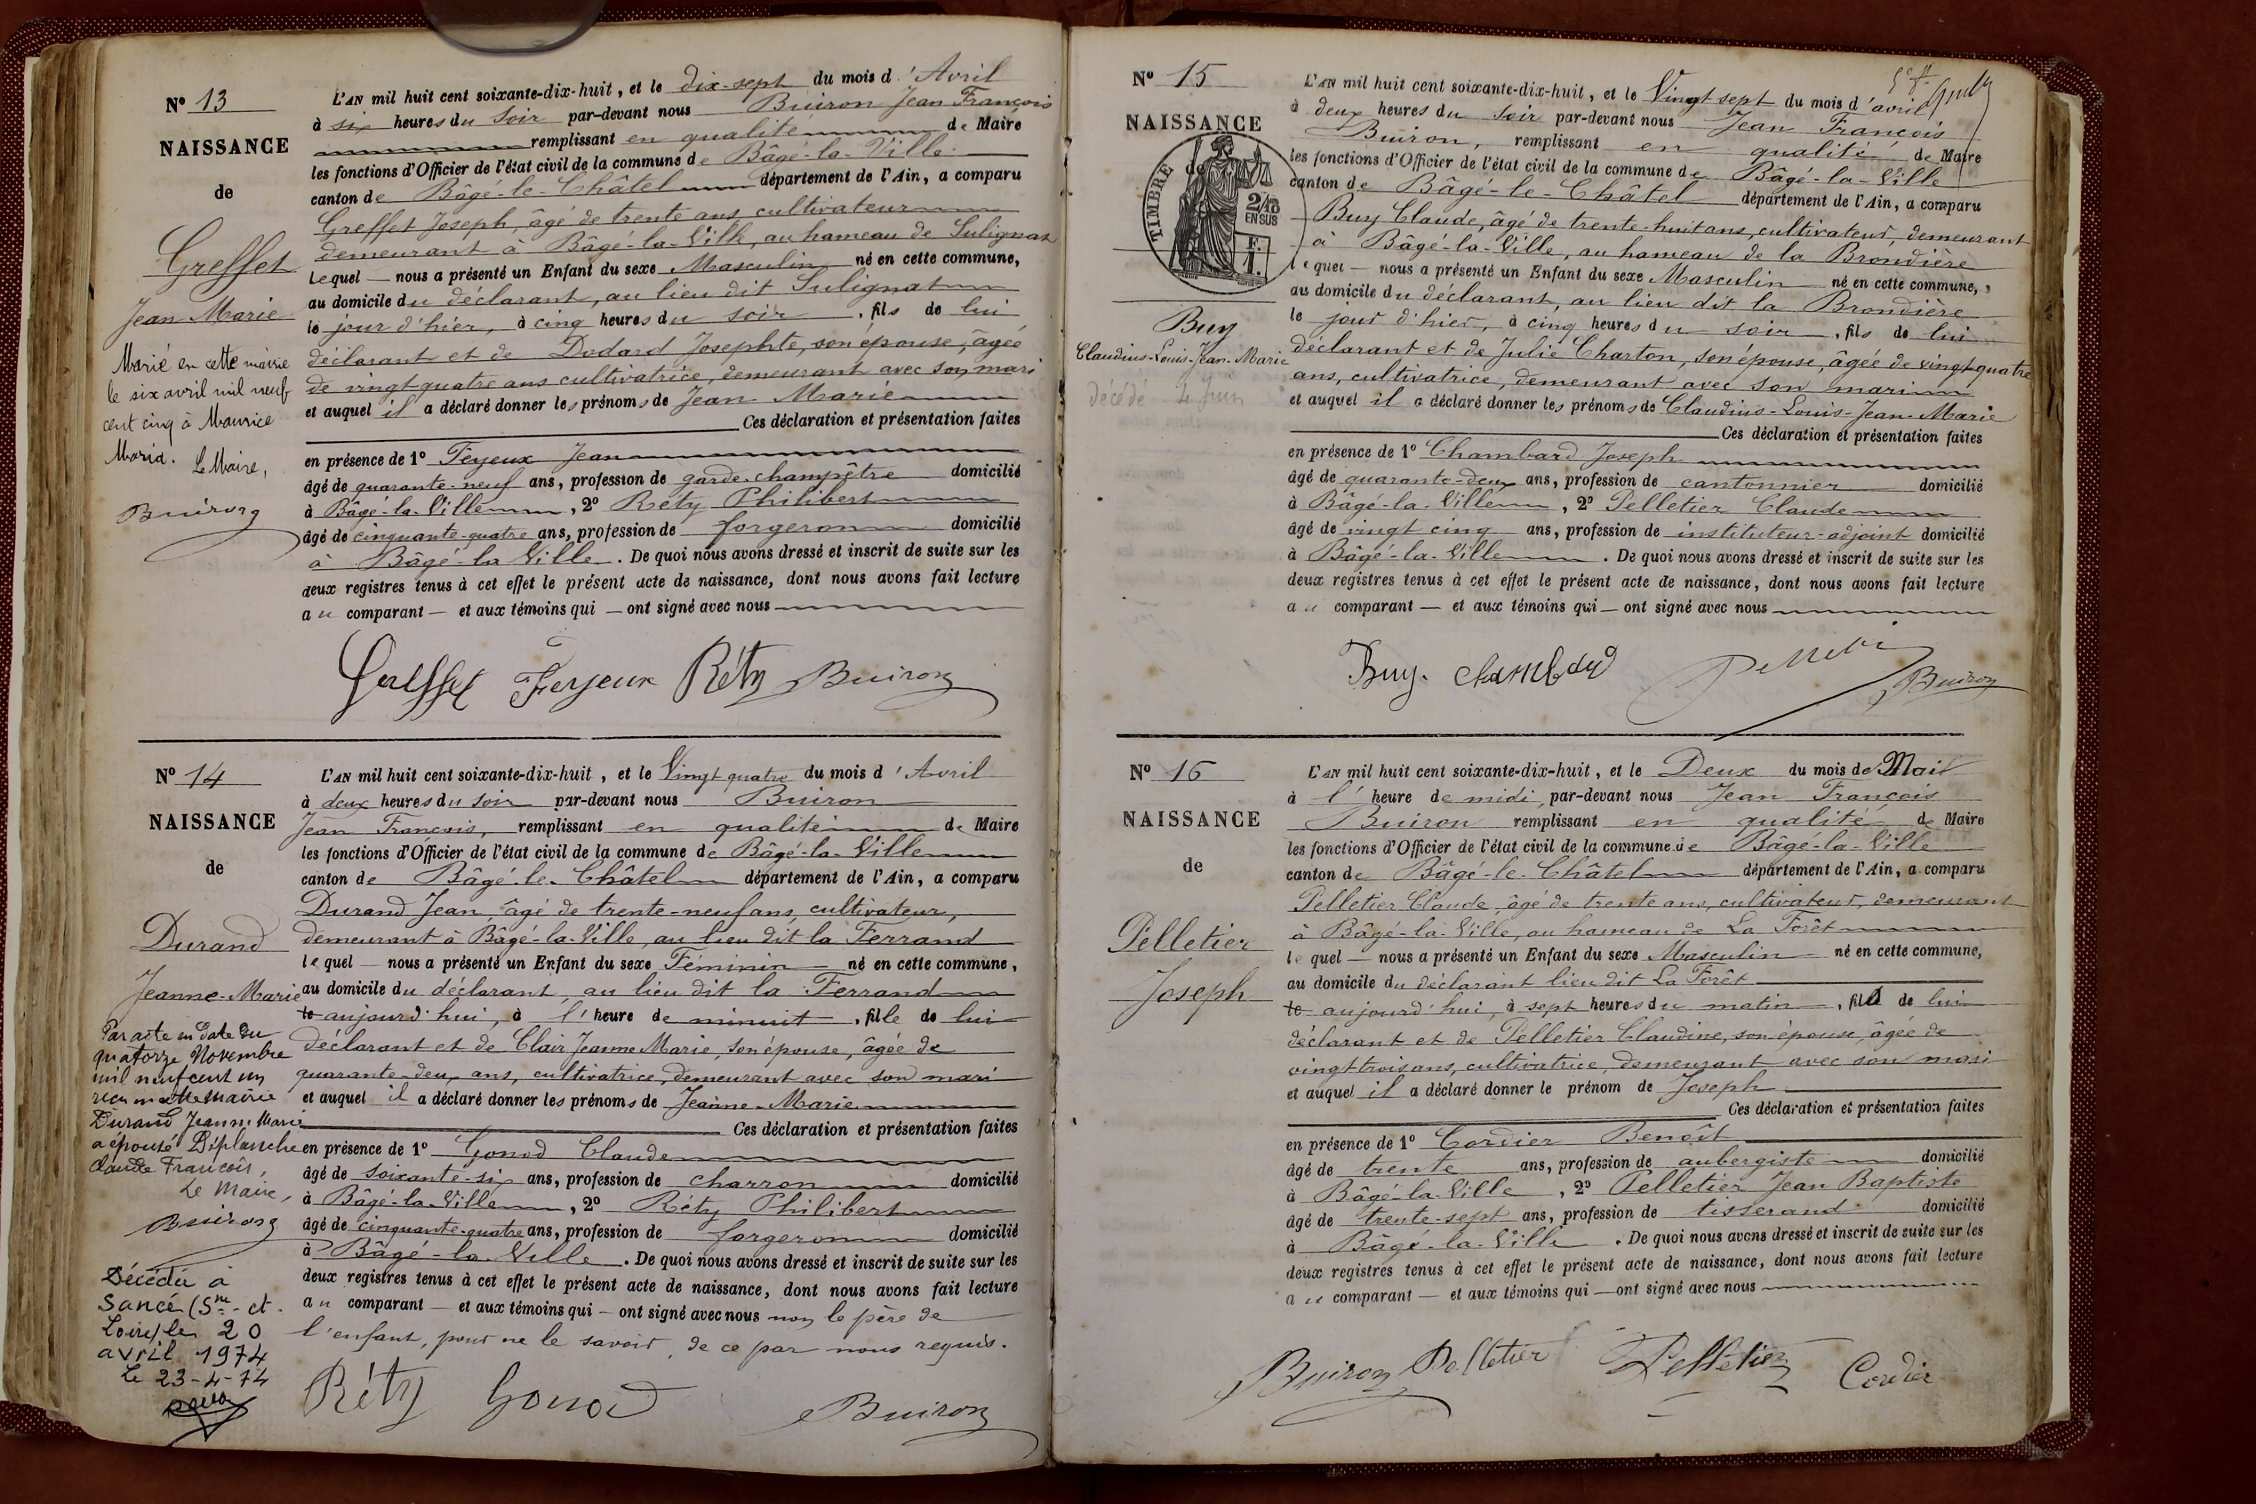 N° 13
NAISSANCE
de
Greffet
Jean Marie
Marié en cette mairie
le six avril mil neuf
cent cinq à Maurice
Maria. Le Maire,
Buiron
L'AN mil huit cent soixante-dix-huit, et le dix-sept du mois d'Avril
à six heures du Soir par-devant nous Buiron Jean François
remplissant en qualité de Maire
les fonctions d'Officier de l'état civil de la commune de Bâgé-la-Ville
canton de Bâgé-le-Châtel département de l'Ain, a comparu
Greffet Joseph, âgé de trente ans, cultivateur
demeurant à Bâgé-la-Ville, au hameau de Sulignat
Lequel nous a présenté un Enfant du sexe Masculin né en cette commune,
au domicile du déclarant, au lieu dit Sulignat
le jour d'hier, à cinq heures du soir, fils de lui
déclarant et de Dodard Josephte, son épouse, âgée
de vingt quatre ans cultivatrice, demeurant avec son mari
et auquel il a déclaré donner les prénoms de Jean Marie
Ces déclaration et présentation faites
en présence de 1° Feyeux Jean
âgé de quarante-neuf ans, profession de garde-champêtre domicilié
à Bâgé-la-Ville, 2° Réty Philibert
âgé de cinquante-quatre ans, profession de forgeron domicilié
à Bâgé-la-Ville. De quoi nous avons dressé et inscrit de suite sur les
deux registres tenus à cet effet le présent acte de naissance, dont nous avons fait lecture
au comparant et aux témoins qui ont signé avec nous
Greffet Feyeux Réty Buiron
N° 14
NAISSANCE
de
Durand
Jeanne-Marie
Par acte en date du
quatorze Novembre
mil neuf cent un
reçu en cette mairie
Durand Jeanne Marie
a épousé Déplanche
Claude François,
Le Maire,
Buiron
Décédée à
Sancé (Sne-et-
Loire) le 20
avril 1974
Le 23-4-74
L'AN mil huit cent soixante-dix-huit, et le Vingt quatre du mois d'Avril
à deux heures du soir par-devant nous Buiron
Jean François, remplissant en qualité de Maire
les fonctions d'Officier de l'état civil de la commune de Bâgé-la-Ville
canton de Bâgé-le-Châtel département de l'Ain, a comparu
Durand Jean, âgé de trente-neuf ans, cultivateur,
demeurant à Bâgé-la-Ville, au lieu dit la Ferrand
lequel nous a présenté un Enfant du sexe Féminin né en cette commune,
au domicile du déclarant, au lieu dit la Ferrand
le aujourd'hui, à l'heure de minuit, fille de lui
déclarant et de Clair Jeanne Marie, son épouse, âgée de
quarante-deux ans, cultivatrice, demeurant avec son mari
et auquel il a déclaré donner les prénoms de Jeanne-Marie
Ces déclaration et présentation faites
en présence de 1° Gonod Claude
âgé de soixante-six ans, profession de charron domicilié
à Bâgé-la-Ville, 2° Réty Philibert
âgé de cinquante-quatre ans, profession de forgeron domicilié
à Bâgé-la-Ville. De quoi nous avons dressé et inscrit de suite sur les
deux registres tenus à cet effet le présent acte de naissance, dont nous avons fait lecture
au comparant et aux témoins qui ont signé avec nous non le père de
l'enfant, pour ne le savoir, de ce par nous requis.
Réty Gonod Buiron
N° 15
NAISSANCE
de
TIMBRE
2/10
EN SUS
F.
1.
Buy
Claudius-Louis-Jean-Marie
décédé 4 juin
L'AN mil huit cent soixante-dix-huit, et le Vingt sept du mois d'avril
à deux heures du soir par-devant nous Jean François
Buiron, remplissant en qualité de Maire
les fonctions d'Officier de l'état civil de la commune de Bâgé-la-Ville
canton de Bâgé-le-Châtel département de l'Ain, a comparu
Buy Claude, âgé de trente-huit ans, cultivateur, demeurant
à Bâgé-la-Ville, au hameau de la Brondière
lequel nous a présenté un Enfant du sexe Masculin né en cette commune,
au domicile du déclarant, au lieu dit la Brondière
le jour d'hier, à cinq heures du soir, fils de lui
déclarant et de Julie Charton, son épouse, âgée de vingt-quatre
ans, cultivatrice, demeurant avec son mari
et auquel il a déclaré donner les prénoms de Claudius-Louis-Jean-Marie
Ces déclaration et présentation faites
en présence de 1° Chambard Joseph
âgé de quarante-deux ans, profession de cantonnier domicilié
à Bâgé-la-Ville, 2° Pelletier Claude
âgé de vingt cinq ans, profession de instituteur-adjoint domicilié
à Bâgé-la-Ville. De quoi nous avons dressé et inscrit de suite sur les
deux registres tenus à cet effet le présent acte de naissance, dont nous avons fait lecture
au comparant et aux témoins qui ont signé avec nous
Buy. Chambard Pelletier Buiron
N° 16
NAISSANCE
de
Pelletier
Joseph
L'AN mil huit cent soixante-dix-huit, et le Deux du mois de Mai
à l'heure de midi, par-devant nous Jean François
Buiron remplissant en qualité de Maire
les fonctions d'Officier de l'état civil de la commune de Bâgé-la-Ville
canton de Bâgé-le-Châtel département de l'Ain, a comparu
Pelletier Claude, âgé de trente ans, cultivateur, demeurant
à Bâgé-la-Ville, au hameau de La Forêt
lequel nous a présenté un Enfant du sexe Masculin né en cette commune,
au domicile du déclarant lieu dit La Forêt
le aujourd'hui, à sept heures du matin, fils de lui
déclarant et de Pelletier Claudine, son épouse, âgée de
vingt trois ans, cultivatrice, demeurant avec son mari
et auquel il a déclaré donner le prénom de Joseph
Ces déclaration et présentation faites
en présence de 1° Cordier Benoît
âgé de trente ans, profession de aubergiste domicilié
à Bâgé-la-Ville, 2° Pelletier Jean Baptiste
âgé de trente-sept ans, profession de tisserand domicilié
à Bâgé-la-Ville. De quoi nous avons dressé et inscrit de suite sur les
deux registres tenus à cet effet le présent acte de naissance, dont nous avons fait lecture
au comparant et aux témoins qui ont signé avec nous
Buiron Pelletier Pelletier Cordier